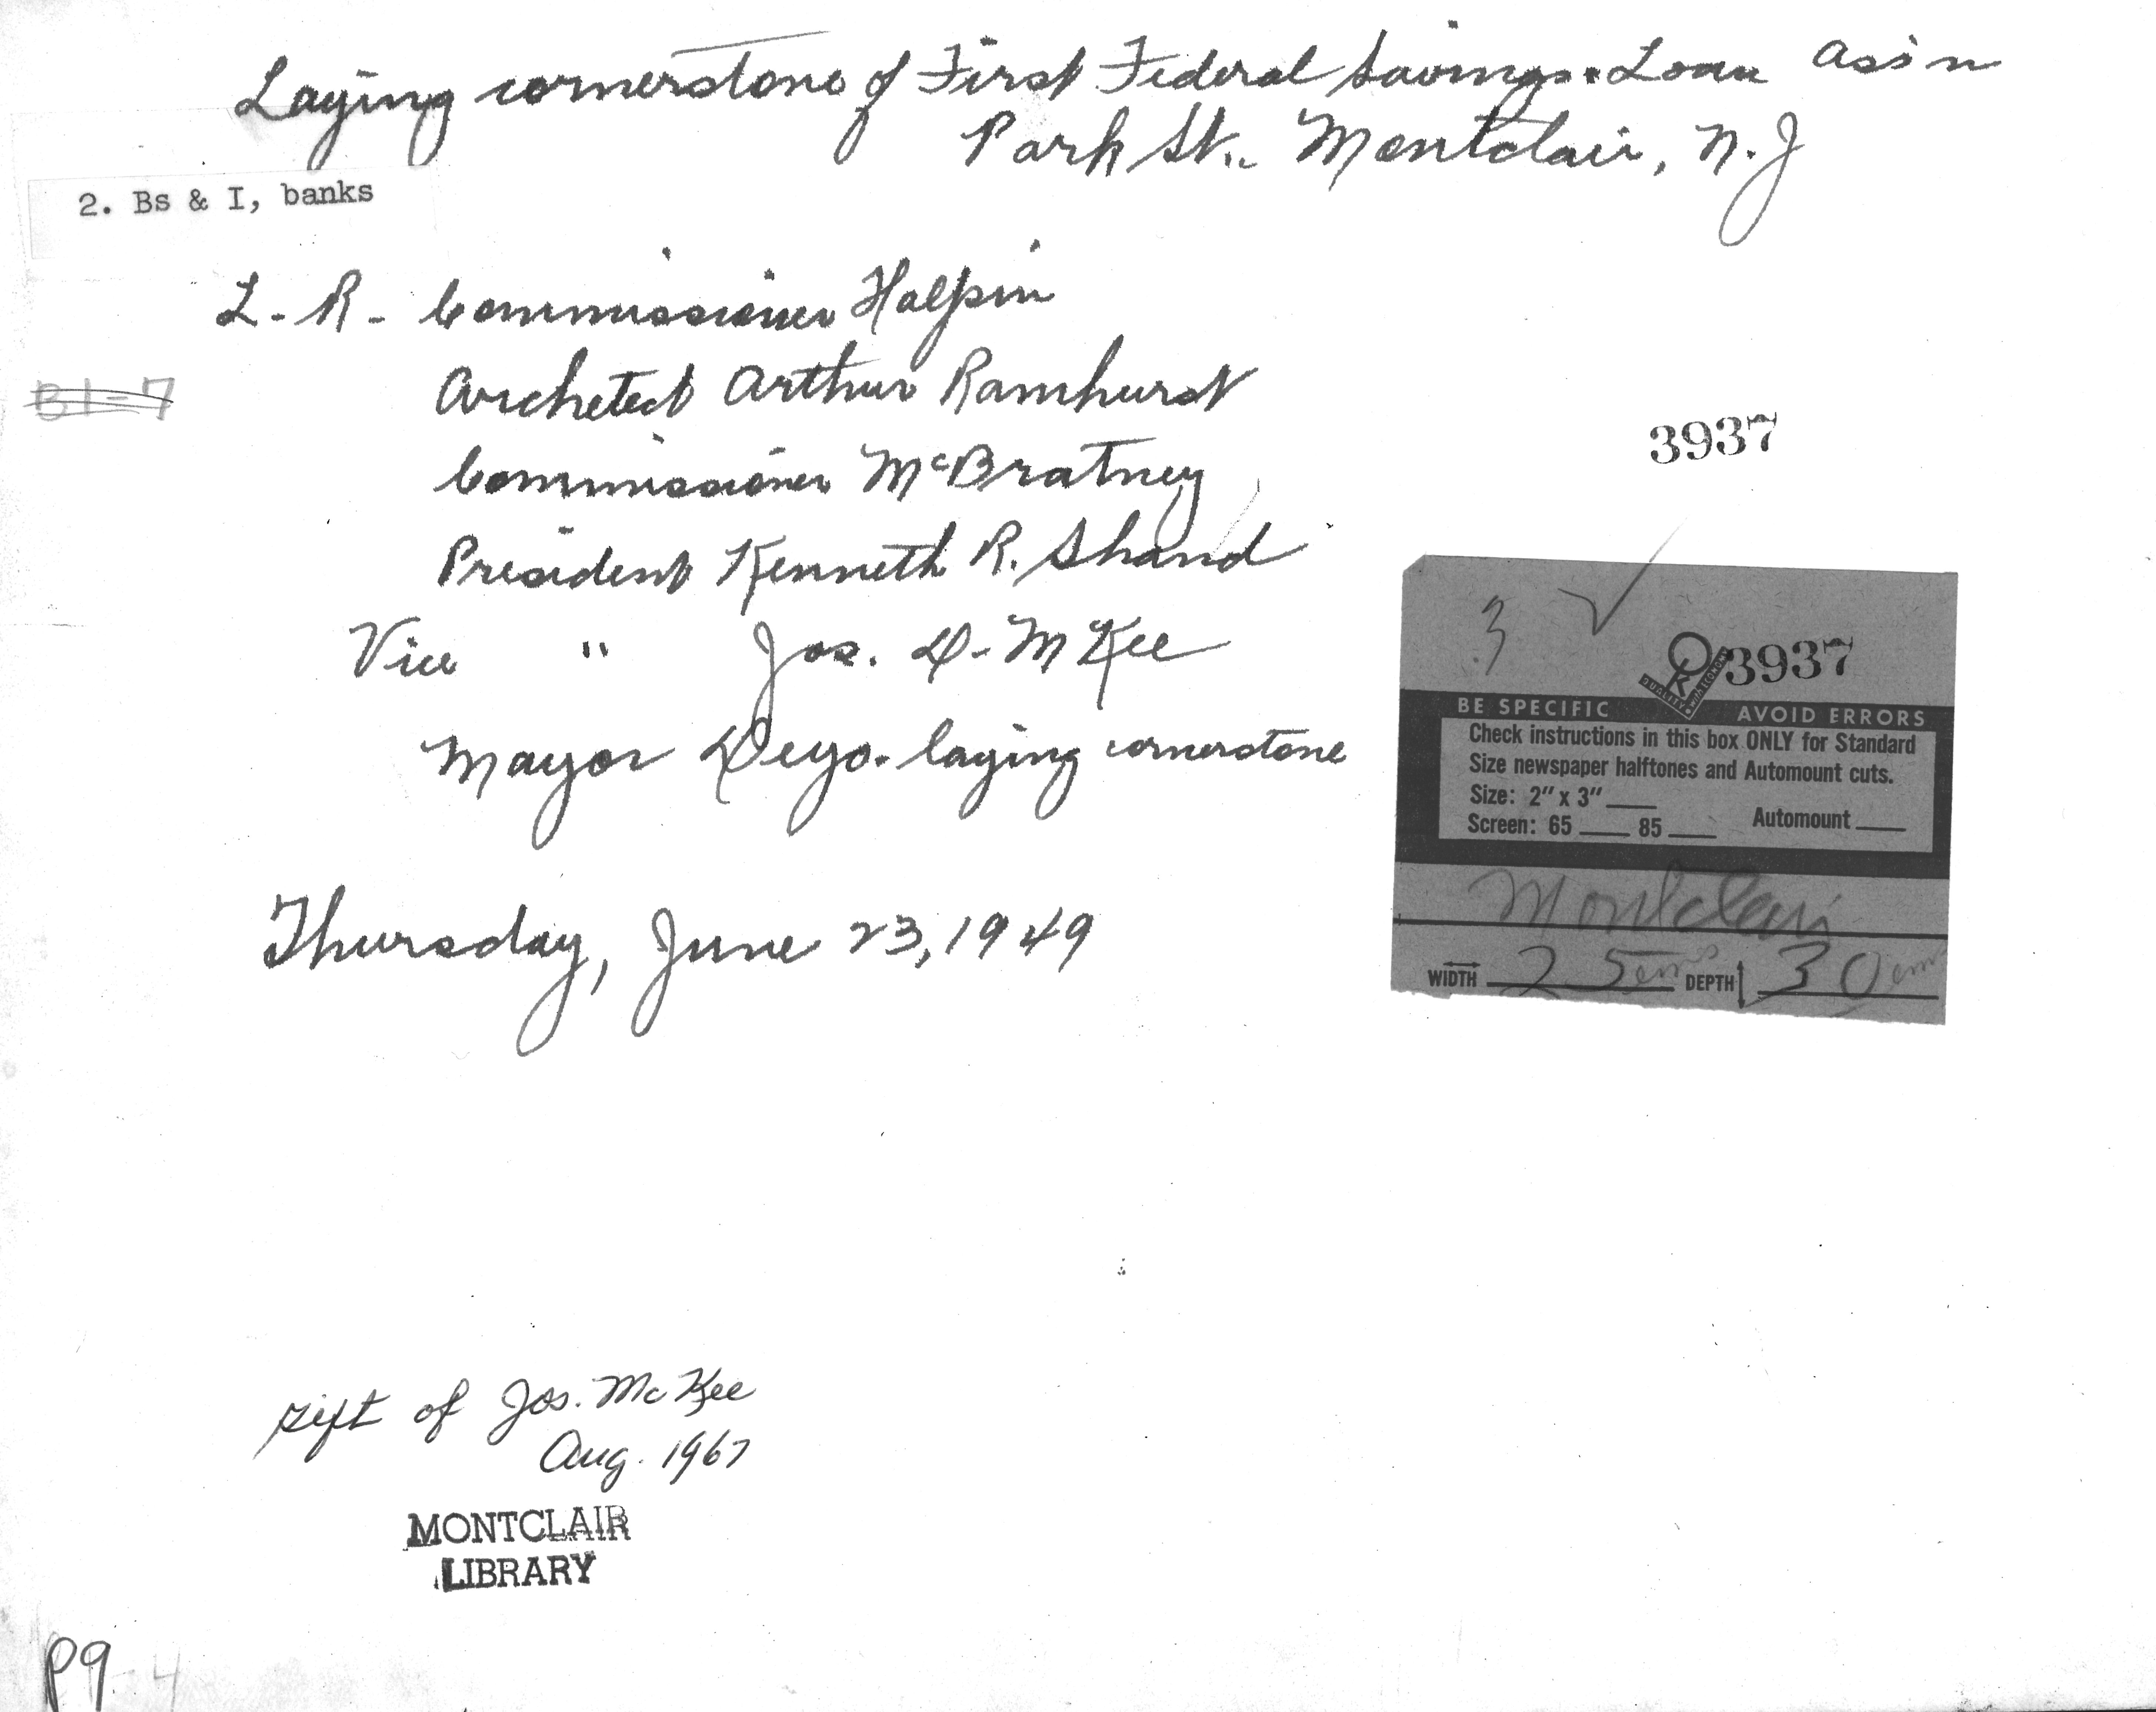 Laying cornerstone of First Federal Savings & Loan Ass'n
Park St., Montclair, N.J
2. Bs & I, banks
L - R - Commissioner Halpin
Archetect Arthur Ramhurst
B1-7
3937
Commissioner McBratney
President Kenneth R. Shand
Vice " Jos. D. McKee
Mayor Deyo. laying cornerstone
Thursday, June 23, 1949
3
3937
BE SPECIFIC AVOID ERRORS
Check instructions in this box ONLY for Standard
Size newspaper halftones and Automount cuts.
Size: 2" x 3" ____
Screen: 65 ____ 85 ____ Automount ____
Montclair
WIDTH 25 ems DEPTH 30 ems
gift of Jos. McKee
Aug. 1967
MONTCLAIR
LIBRARY
P9-4